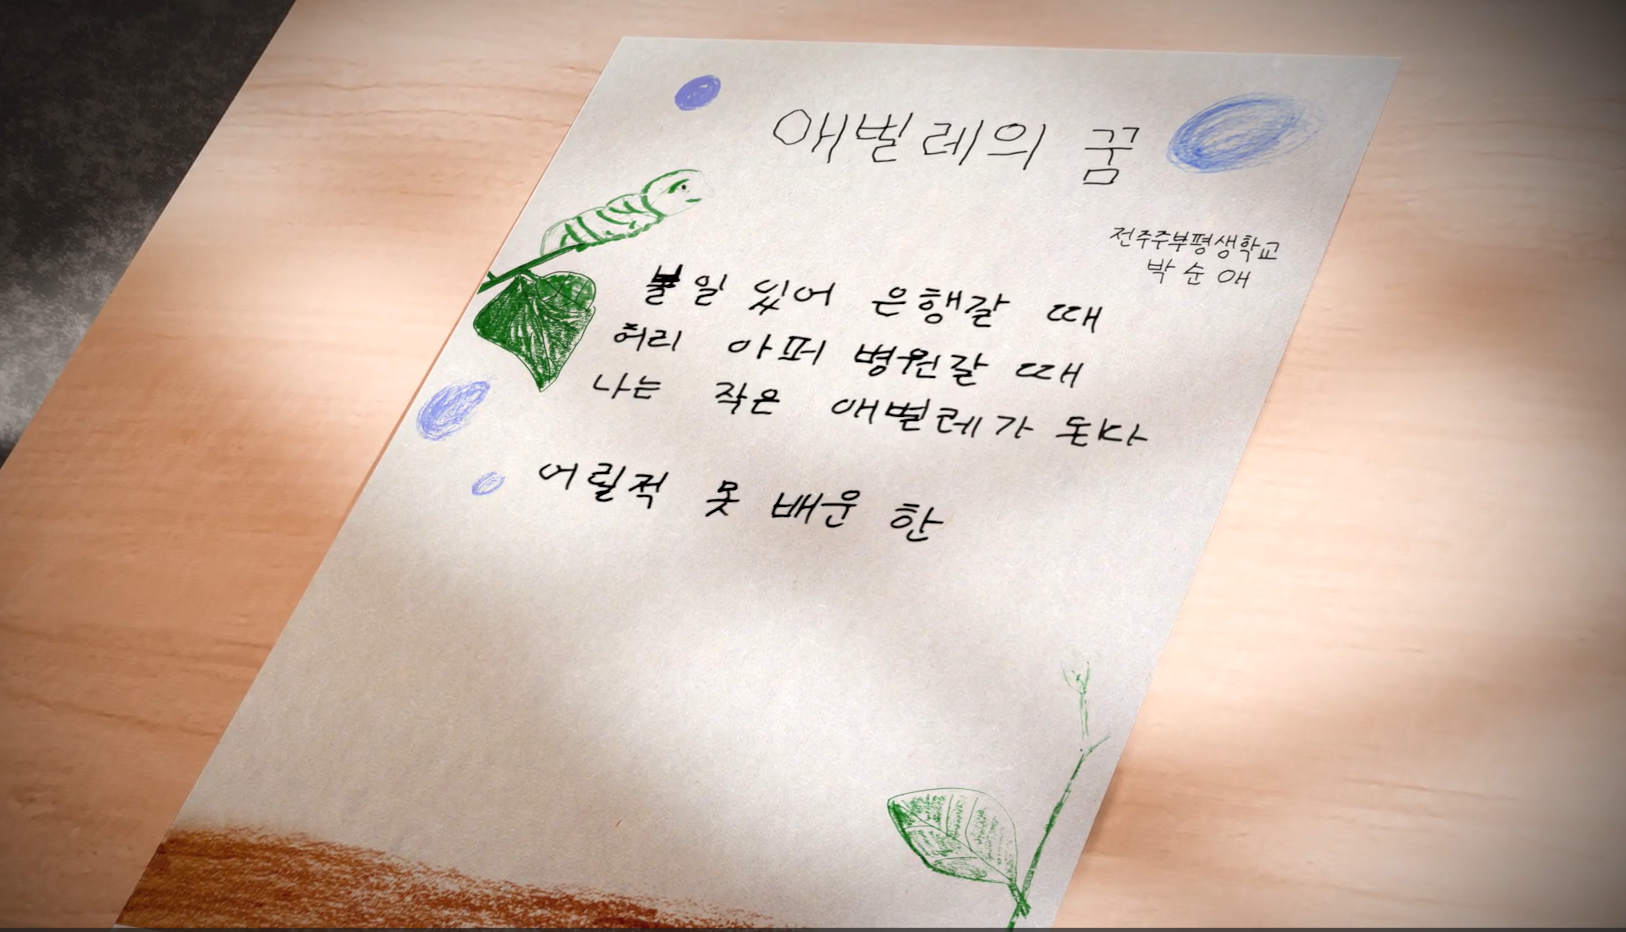 애벌레의 꿈
전주주부평생학교
박순애
볼일 있어 은행갈 때
허리 아퍼 병원갈 때
나는 작은 애벌레가 돈다
어릴적 못 배운 한